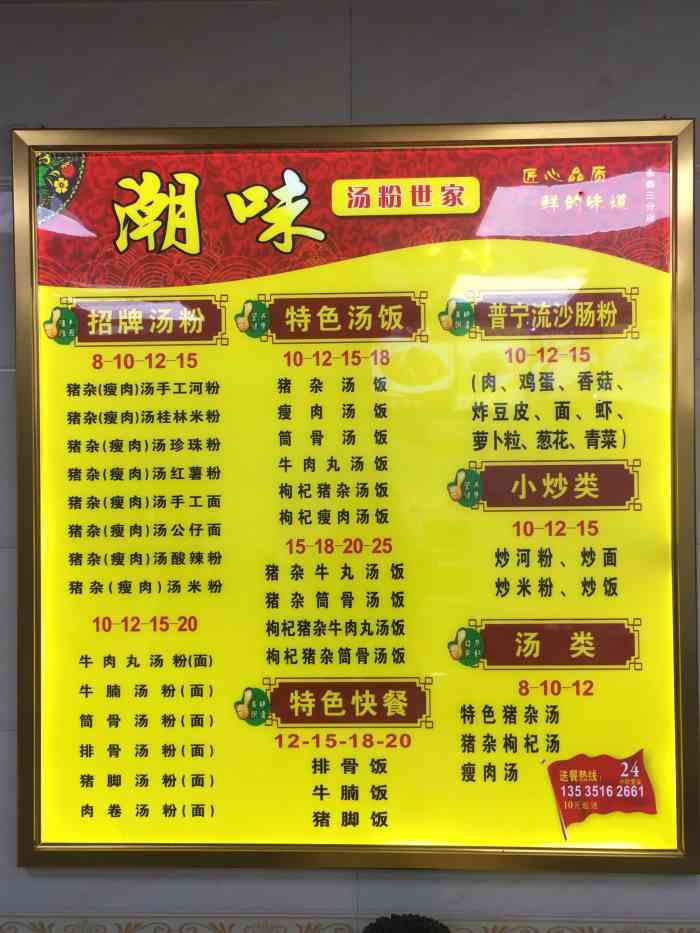 潮味
汤粉世家
匠心品质
鲜的味道
招牌汤粉
8-10-12-15
猪杂(瘦肉)汤手工河粉
猪杂(瘦肉)汤桂林米粉
猪杂(瘦肉)汤珍珠粉
猪杂(瘦肉)汤红薯粉
猪杂(瘦肉)汤手工面
猪杂(瘦肉)汤公仔面
猪杂(瘦肉)汤酸辣粉
猪杂(瘦肉)汤米粉
10-12-15-20
牛肉丸汤粉(面)
牛腩汤粉(面)
筒骨汤粉(面)
排骨汤粉(面)
猪脚汤粉(面)
肉卷汤粉(面)
特色汤饭
10-12-15-18
猪杂汤饭
瘦肉汤饭
筒骨汤饭
牛肉丸汤饭
枸杞猪杂汤饭
枸杞瘦肉汤饭
15-18-20-25
猪杂牛丸汤饭
猪杂筒骨汤饭
枸杞猪杂牛肉丸汤饭
枸杞猪杂筒骨汤饭
特色快餐
12-15-18-20
排骨饭
牛腩饭
猪脚饭
普宁流沙肠粉
10-12-15
(肉、鸡蛋、香菇、
炸豆皮、面、虾、
萝卜粒、葱花、青菜)
小炒类
10-12-15
炒河粉、炒面
炒米粉、炒饭
汤类
8-10-12
特色猪杂汤
猪杂枸杞汤
瘦肉汤
送餐热线: 24
135 3516 2661
10元起送